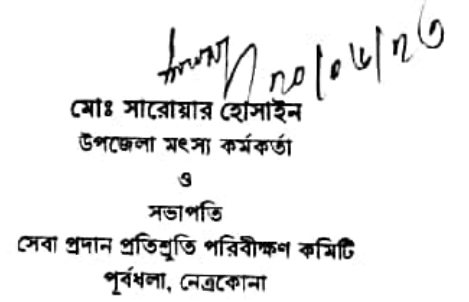 ২০/০৬/২৩
মোঃ সারোয়ার হোসাইন
উপজেলা মৎস্য কর্মকর্তা
ও
সভাপতি
সেবা প্রদান প্রতিশ্রুতি পরিবীক্ষণ কমিটি
পূর্বধলা, নেত্রকোনা